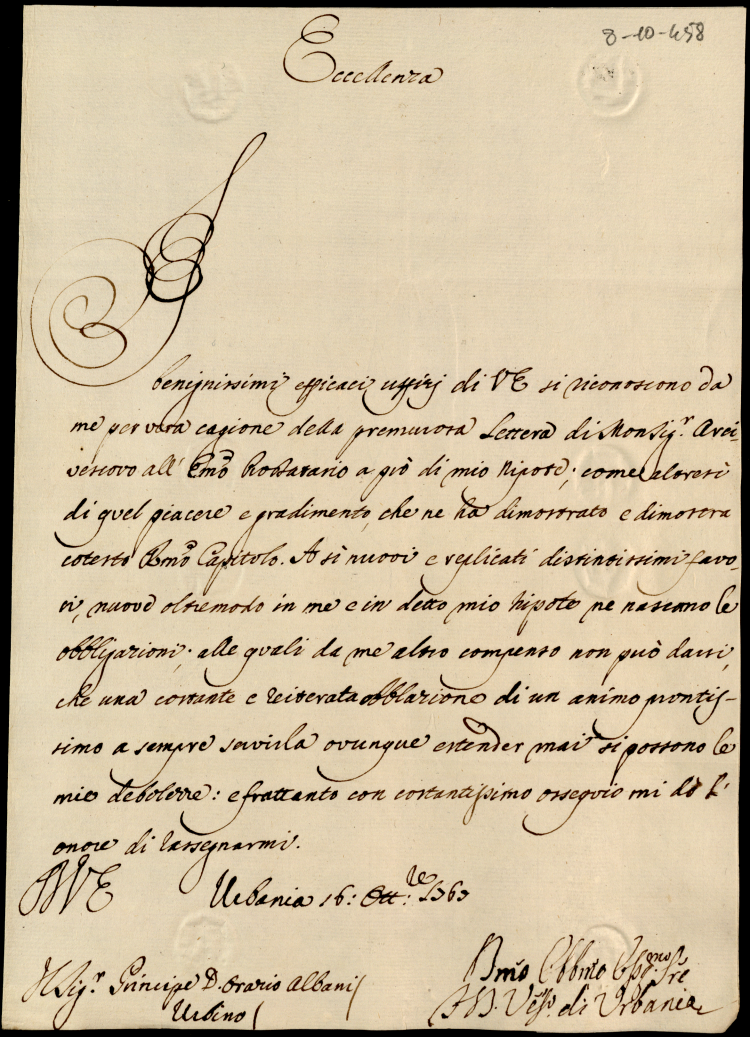 8-10-458
Eccellenza
I
benignissimi efficaci uffizj di VE si riconoscono da
me per vera cagione della premurosa Lettera di Monsig.r Arci-
vescovo all' Emo a prò di mio Nipote; come altresì
di quel piacere e gradimento, che ne ha dimostrato e dimostra
cotesto Rmo Capitolo. A sì nuovi e replicati distintissimi favo-
ri, nuove oltremodo in me e in detto mio Nipote ne nascono le
obbligazioni; alle quali da me altro compenso non può darsi,
che una costante e reiterata obblazione di un animo prontis-
simo a sempre servirla ovunque estender mai si possono le
mie debolezze: e frattanto con costantissimo ossequio mi do l'
onore di rassegnarmi.
DVE Urbania 16: Ott:re 1763
Il Sig.r Principe D. Orazio Albani
Urbino
Obbmo
Ves.o di Urbania